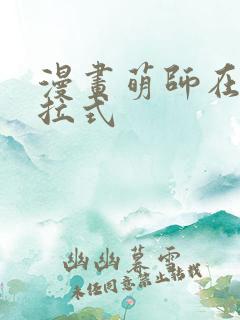 漫畫萌師在
拉式
幽幽暮雲
未经同意禁止转载